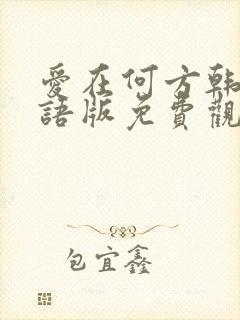 愛在何方韩
語版免費觀
包宜鑫